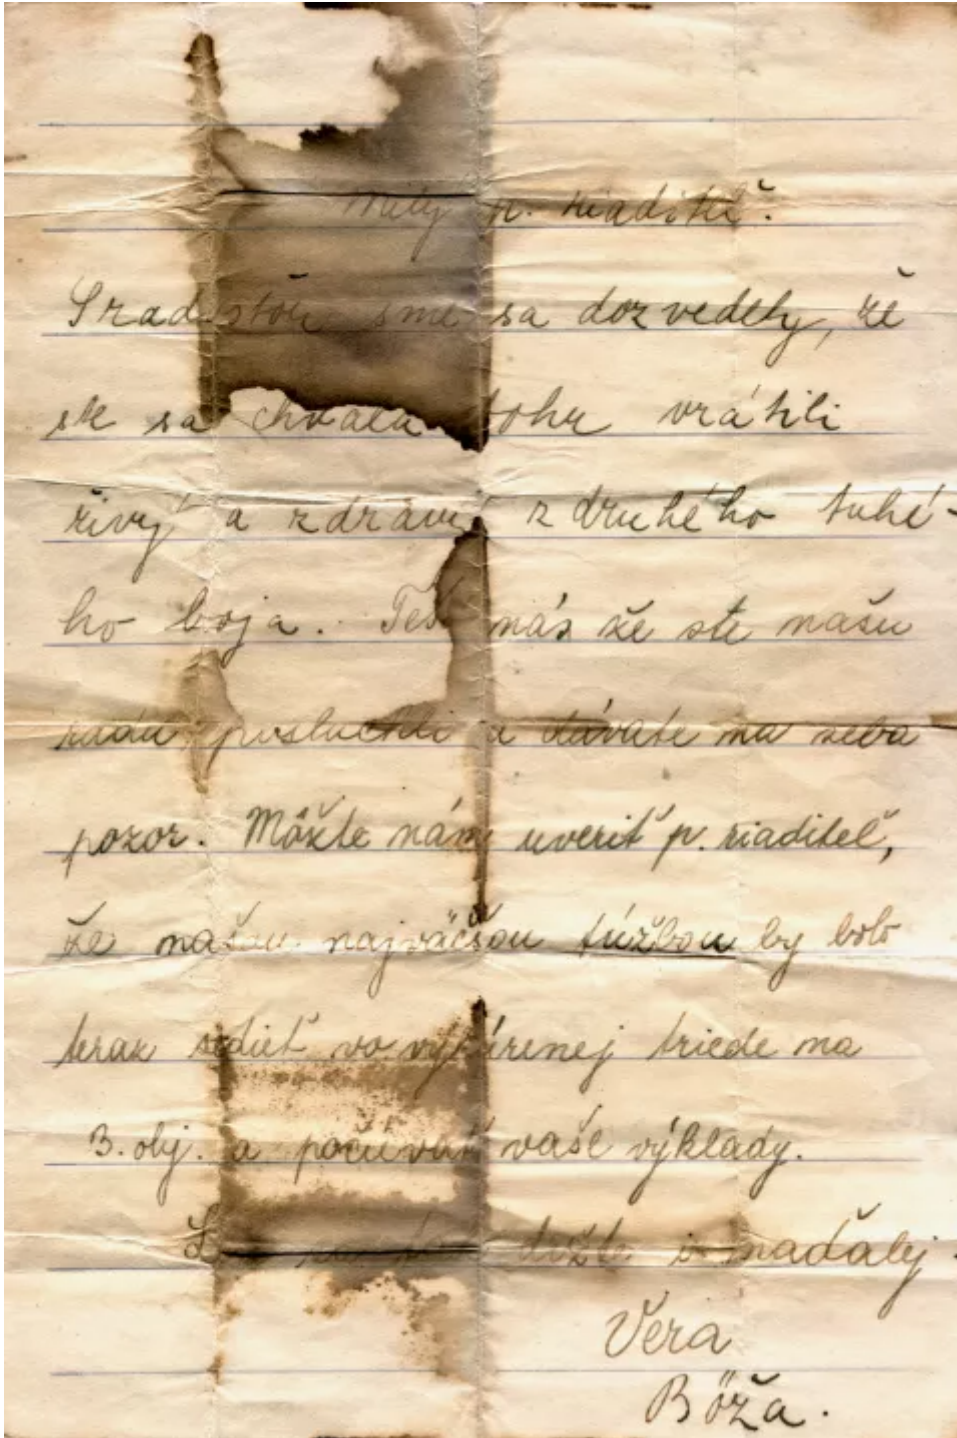 Milý p. riaditeľ.
S radosťou sme sa dozvedely, že
ste sa chvála bohu vrátili
živý a zdravý z druhého tuhé-
ho boja. Teš nás že ste našu
radu posluchli a dávate na seba
pozor. Môžte nám uveriť p. riaditeľ,
že našou najväčšou túžbou by bolo
teraz sedieť vo vykúrenej triede na
3. obj. a počúvať vaše výklady.
držte i naďalej.
Vera
Böža.